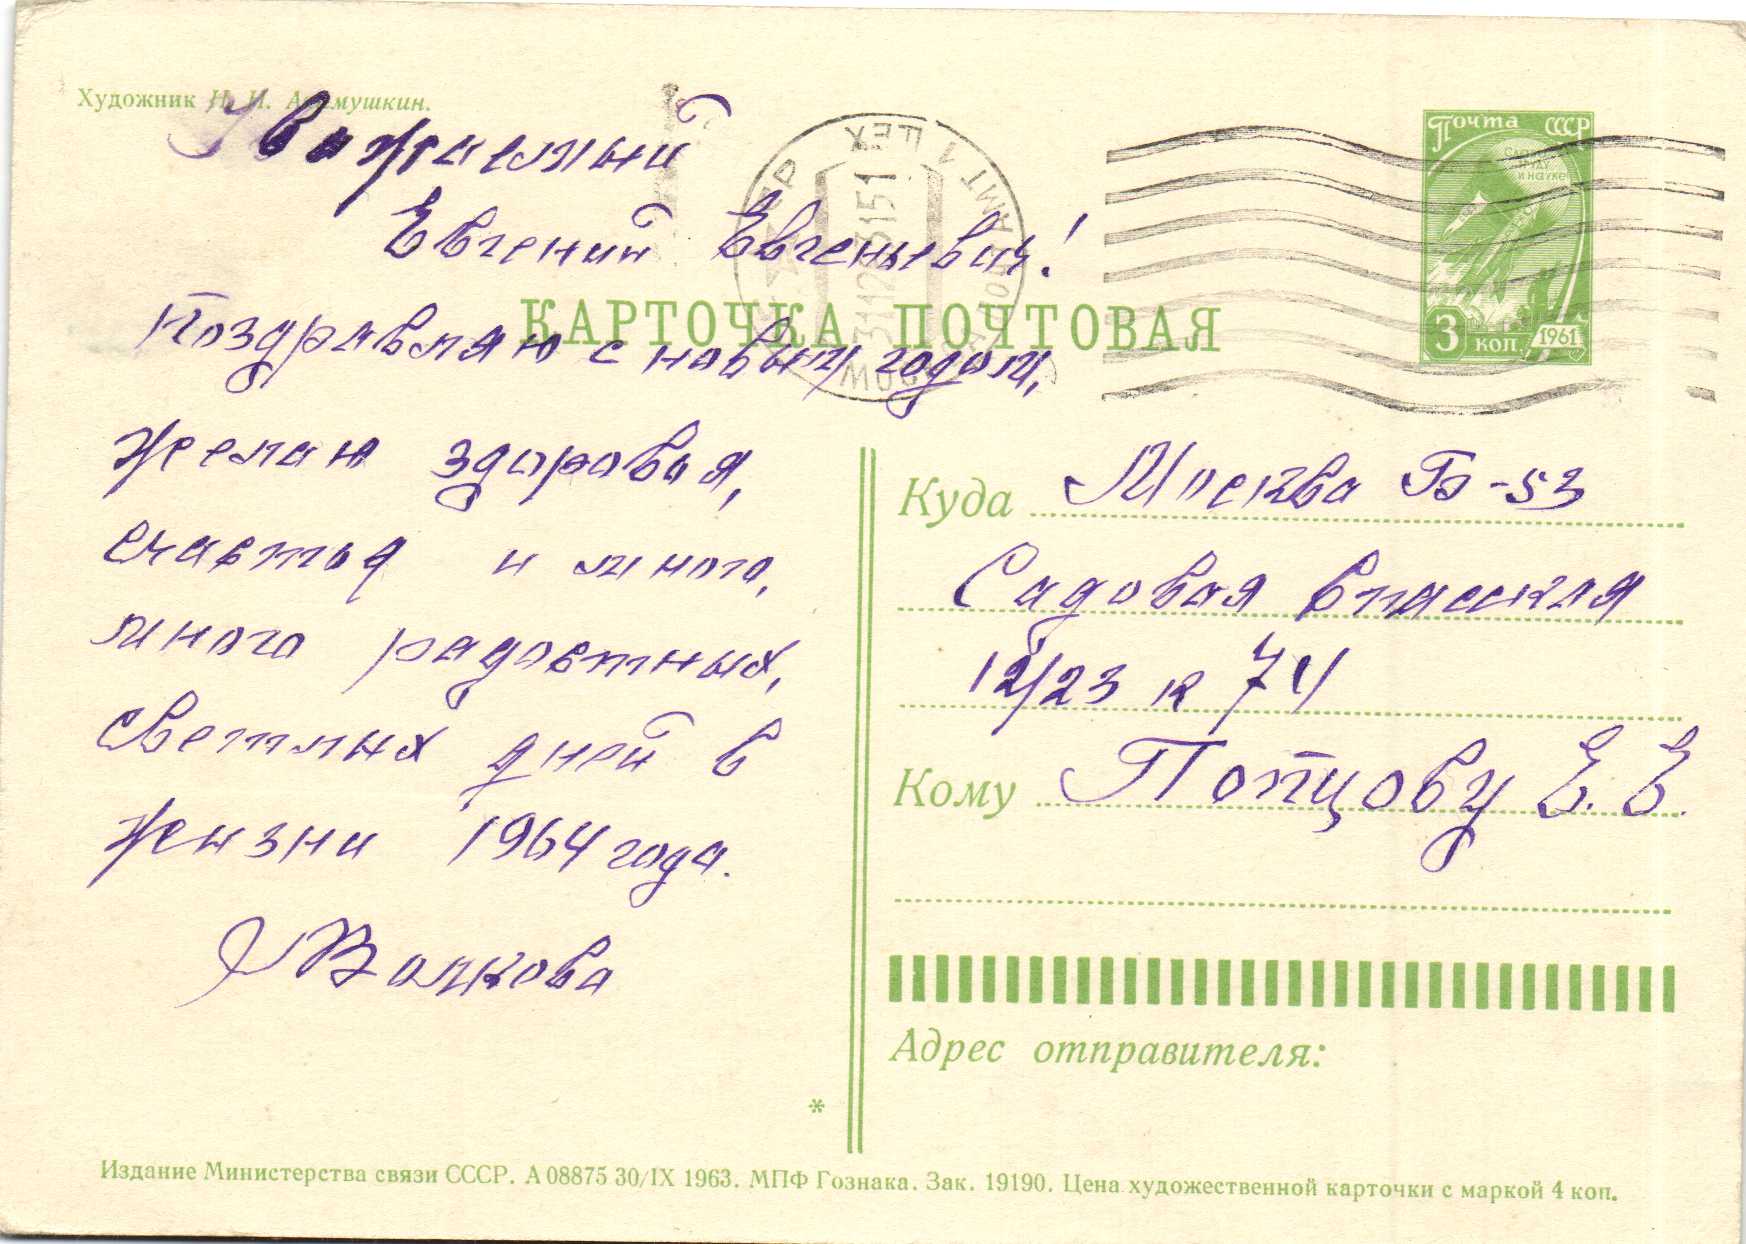 Художник Н. И. Акимушкин.
Уважаемый
Евгений Евгеньевич!
КАРТОЧКА ПОЧТОВАЯ
Поздравляю с новым годом,
желаю здоровья,
счастья и много,
много радостных,
светлых дней в
жизни 1964 года.
Волкова
Почта СССР
СЛАВА ТРУДУ И НАУКЕ
3 коп. 1961
МОСКВА ПОЧТАМТ 1 ЦЕХ
311263 151
Куда Москва Б-53
Садовая Спасская
12/23 к 74
Кому Попцову Е. Е.
Адрес отправителя:
*
Издание Министерства связи СССР. А 08875 30/IX 1963. МПФ Гознака. Зак. 19190. Цена художественной карточки с маркой 4 коп.